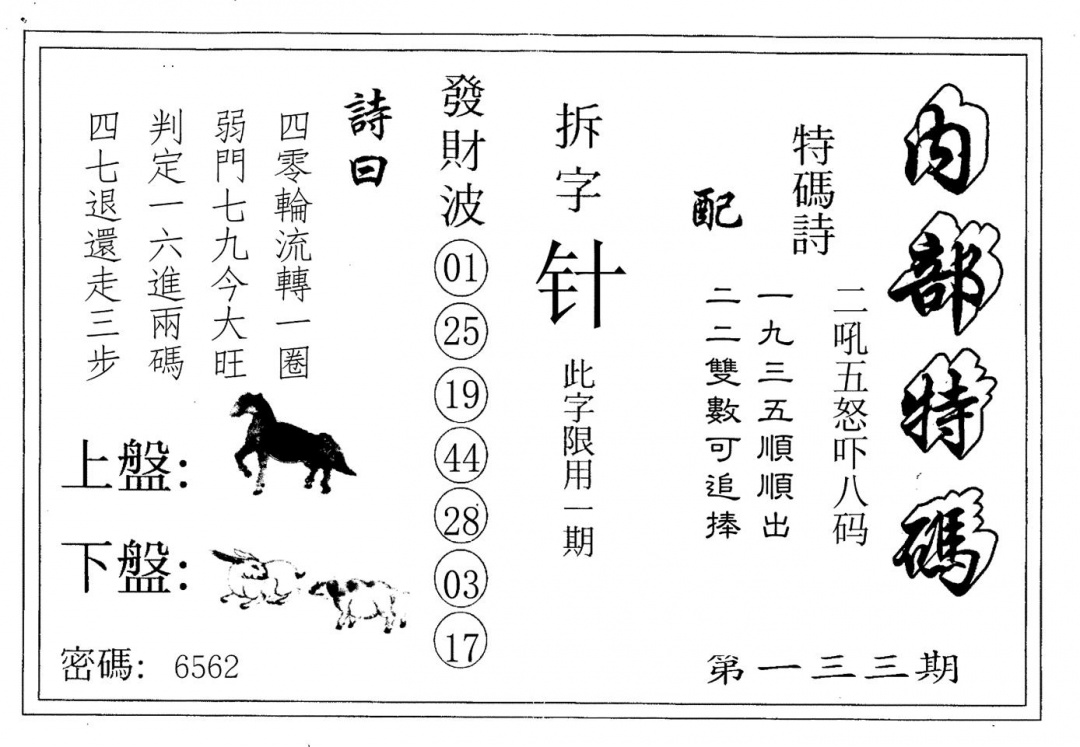 內部特碼
第一三三期
特碼詩
二吼五怒吓八码
配
一九三五順順出
二二雙數可追捧
拆字
针
此字限用一期
發財波
01
25
19
44
28
03
17
詩曰
四零輪流轉一圈
弱門七九今大旺
判定一六進兩碼
四七退還走三步
上盤:
下盤:
密碼: 6562